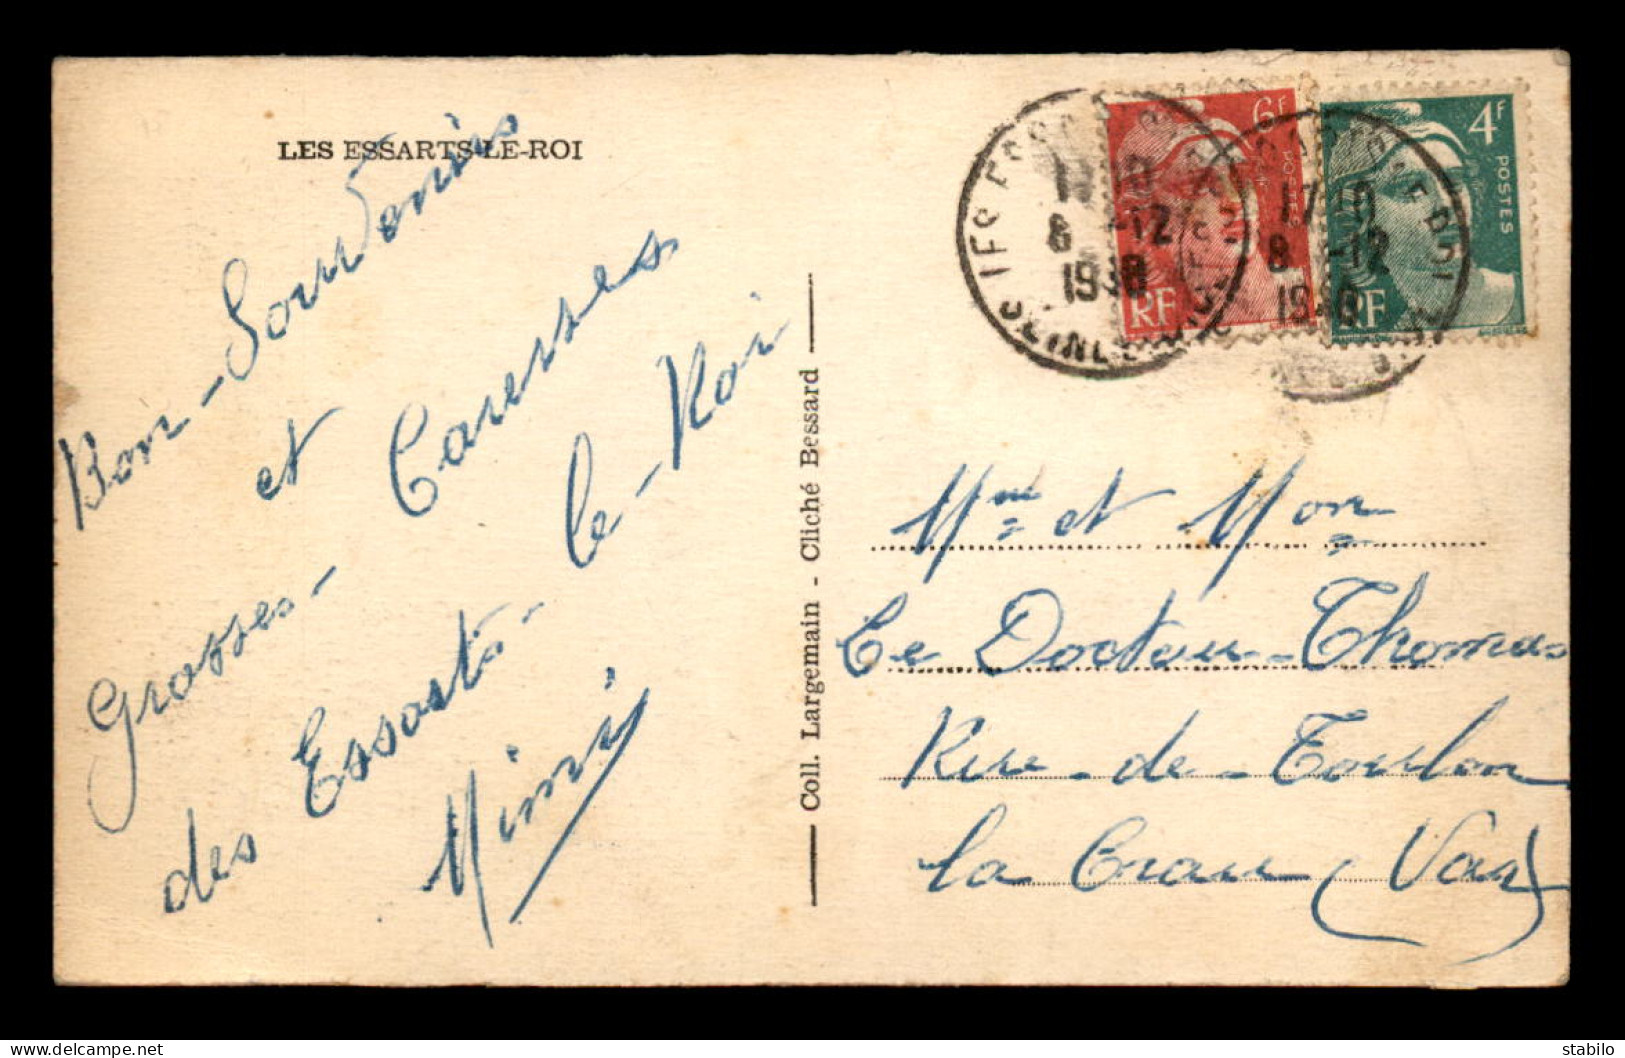 LES ESSARTS-LE-ROI
Bon-Souvenirs
et
Grosses- Caresses
des Essarts- le-Roi
Mimi
Coll. Largemain - Cliché Bessard
6F
POSTES
RF
4F
POSTES
RF
17 10
8 -12
Mme et Mon
Le Docteur-Thomas
Rue-de-Toulon
la Crau (Var)
stabilo